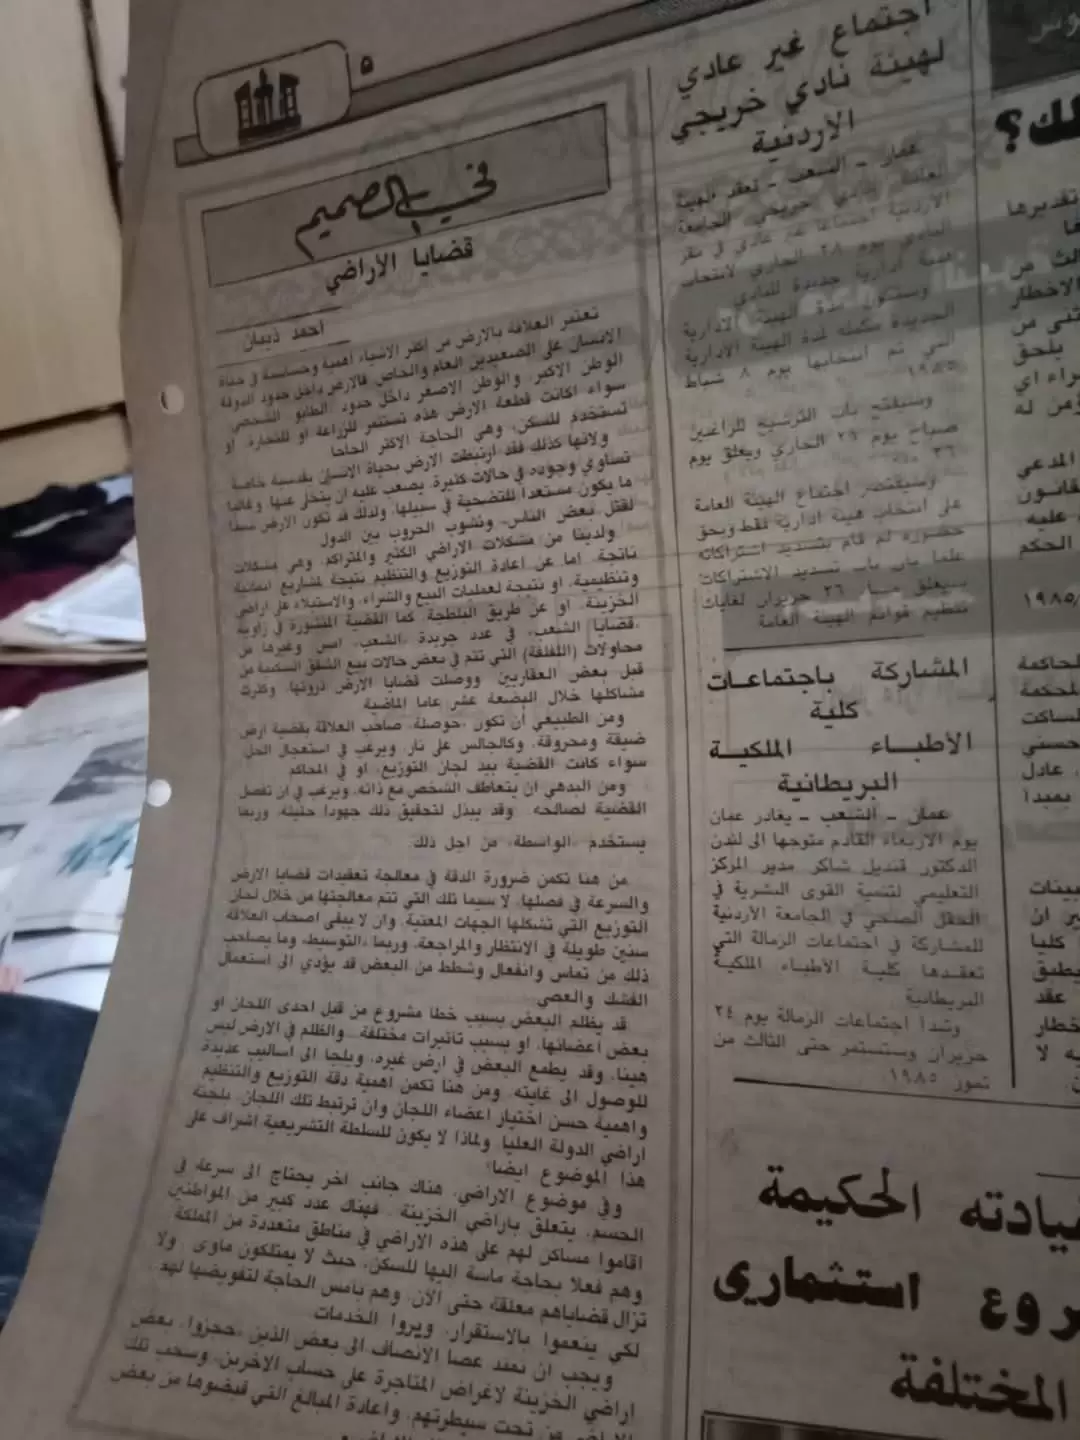 ٥
في الصميم
قضايا الأراضي
احمد ذيبان
تعتبر العلاقة بالارض من اكثر الاشياء أهمية وحساسية في حياة
الانسان على الصعيدين العام والخاص. فالارض داخل حدود الدولة
الوطن الاكبر. والوطن الاصغر داخل حدود .الطابو الشخصي.
سواء اكانت قطعة الارض هذه تستثمر للزراعة او للتجارة. او
تستخدم للسكن، وهي الحاجة الاكثر الحاحا
ولانها كذلك فقد ارتبطت الارض بحياة الانسان بقدسية خاصة
تساوي وجوده في حالات كثيرة. يصعب عليه ان يتخلى عنها وغالبا
ما يكون مستعدا للتضحية في سبيلها. ولذلك قد تكون الارض سببا
لقتل بعض الناس. ونشوب الحروب بين الدول
ولدينا من مشكلات الاراضي الكثير والمتراكم. وهي مشكلات
ناتجة. اما عن اعادة التوزيع والتنظيم نتيجة لمشاريع انمائية
وتنظيمية، او نتيجة لعمليات البيع والشراء، والاستيلاء على اراضي
الخزينة. او عن طريق البلطجة. كما القضية المنشورة في زاوية
«قضايا الشعب» في عدد جريدة «الشعب» امس وغيرها من
محاولات (اللفلفة) التي تتم في بعض حالات بيع الشقق السكنية من
قبل بعض العقاريين ووصلت قضايا الارض ذروتها. وكثرت
مشاكلها خلال البضعة عشر عاما الماضية
ومن الطبيعي أن تكون .حوصلة. صاحب العلاقة بقضية ارض
ضيقة ومحروقة. وكالجالس على نار. ويرغب في استعجال الحل.
سواء كانت القضية بيد لجان التوزيع، او في المحاكم
ومن البدهي ان يتعاطف الشخص مع ذاته. ويرغب في ان تفصل
القضية لصالحه. وقد يبذل لتحقيق ذلك جهودا حثيثه. وربما
يستخدم «الواسطة» من اجل ذلك.
من هنا تكمن ضرورة الدقة في معالجة تعقيدات قضايا الارض
والسرعة في فصلها. لا سيما تلك التي تتم معالجتها من خلال لجان
التوزيع التي تشكلها الجهات المعنية. وان لا يبقى اصحاب العلاقة
سنين طويلة في الانتظار والمراجعة. وربما «التوسيط» وما يصاحب
ذلك من تماس وانفعال وشطط من البعض قد يؤدي الى استعمال
الفشك والعصي
قد يظلم البعض بسبب خطا مشروع من قبل احدى اللجان او
بعض اعضائها، او بسبب تاثيرات مختلفة والظلم في الارض ليس
هينا. وقد يطمع البعض في ارض غيره. ويلجا الى اساليب عديدة
للوصول الى غايته. ومن هنا تكمن اهمية دقة التوزيع والتنظيم
واهمية حسن اختيار اعضاء اللجان وان ترتبط تلك اللجان. بلجنة
اراضي الدولة العليا. ولماذا لا يكون للسلطة التشريعية اشراف على
هذا الموضوع ايضا؟
وفي موضوع الاراضي. هناك جانب اخر يحتاج الى سرعة في
الحسم. يتعلق باراضي الخزينة. فهناك عدد كبير من المواطنين
اقاموا مساكن لهم على هذه الاراضي في مناطق متعددة من المملكة
وهم فعلا بحاجة ماسة اليها للسكن، حيث لا يمتلكون ماوى. ولا
تزال قضاياهم معلقة حتى الآن. وهم بامس الحاجة لتفويضها لهم.
لكي ينعموا بالاستقرار. ويروا الخدمات
ويجب ان تمتد عصا الانصاف الى بعض الذين .حجزوا. بعض
اراضي الخزينة لاغراض المتاجرة على حساب الاخرين. وسحب تلك
الاراضي من تحت سيطرتهم. واعادة المبالغ التي قبضوها من بعض
اجتماع غير عادي
لهيئة نادي خريجي
الاردنية
عمان - الشعب - تعقد الهيئة
العامة لنادي خريجي الجامعة
الاردنية اجتماعا غير عادي في مقر
النادي يوم ٢٨ الجاري لانتخاب
هيئة ادارية جديدة للنادي
وستكون مدة الهيئة الادارية
الجديدة مكملة لمدة الهيئة الادارية
التي تم انتخابها يوم ٨ شباط
١٩٨٥
وسيفتح باب الترشيح للراغبين
صباح يوم الجاري ويغلق يوم
وسيقتصر اجتماع الهيئة العامة
على انتخاب هيئة ادارية فقط ويحق
حضوره لم قام بتسديد اشتراكاته
علما بان باب تسديد الاشتراكات
سيغلق مساء ٢٦ حزيران لغايات
تنظيم قوائم الهيئة العامة
المشاركة باجتماعات
كلية
الأطباء الملكية
البريطانية
عمان - الشعب - يغادر عمان
يوم الاربعاء القادم متوجها الى لندن
الدكتور قنديل شاكر مدير المركز
التعليمي لتنمية القوى البشرية في
الحقل الصحي في الجامعة الأردنية
للمشاركة في اجتماعات الزمالة التي
تعقدها كلية الأطباء الملكية
البريطانية
وتبدأ اجتماعات الزمالة يوم ٢٤
حزيران وستستمر حتى الثالث من
تموز ١٩٨٥.
لك؟
تقديرها
ها
الث من
الاخطار
ثنى من
يلحق
راء اي
ؤمن له
المدعي
قانون
عليه
الحكم
١٩٨٥/
لحاكمة
لمحكمة
لساكت
حسني
عادل
يمبدا
بينات
ير ان
كليا
يطبق
عقد
خطار
يه لا
ن.
يادته الحكيمة
روع استثماري
المختلفة